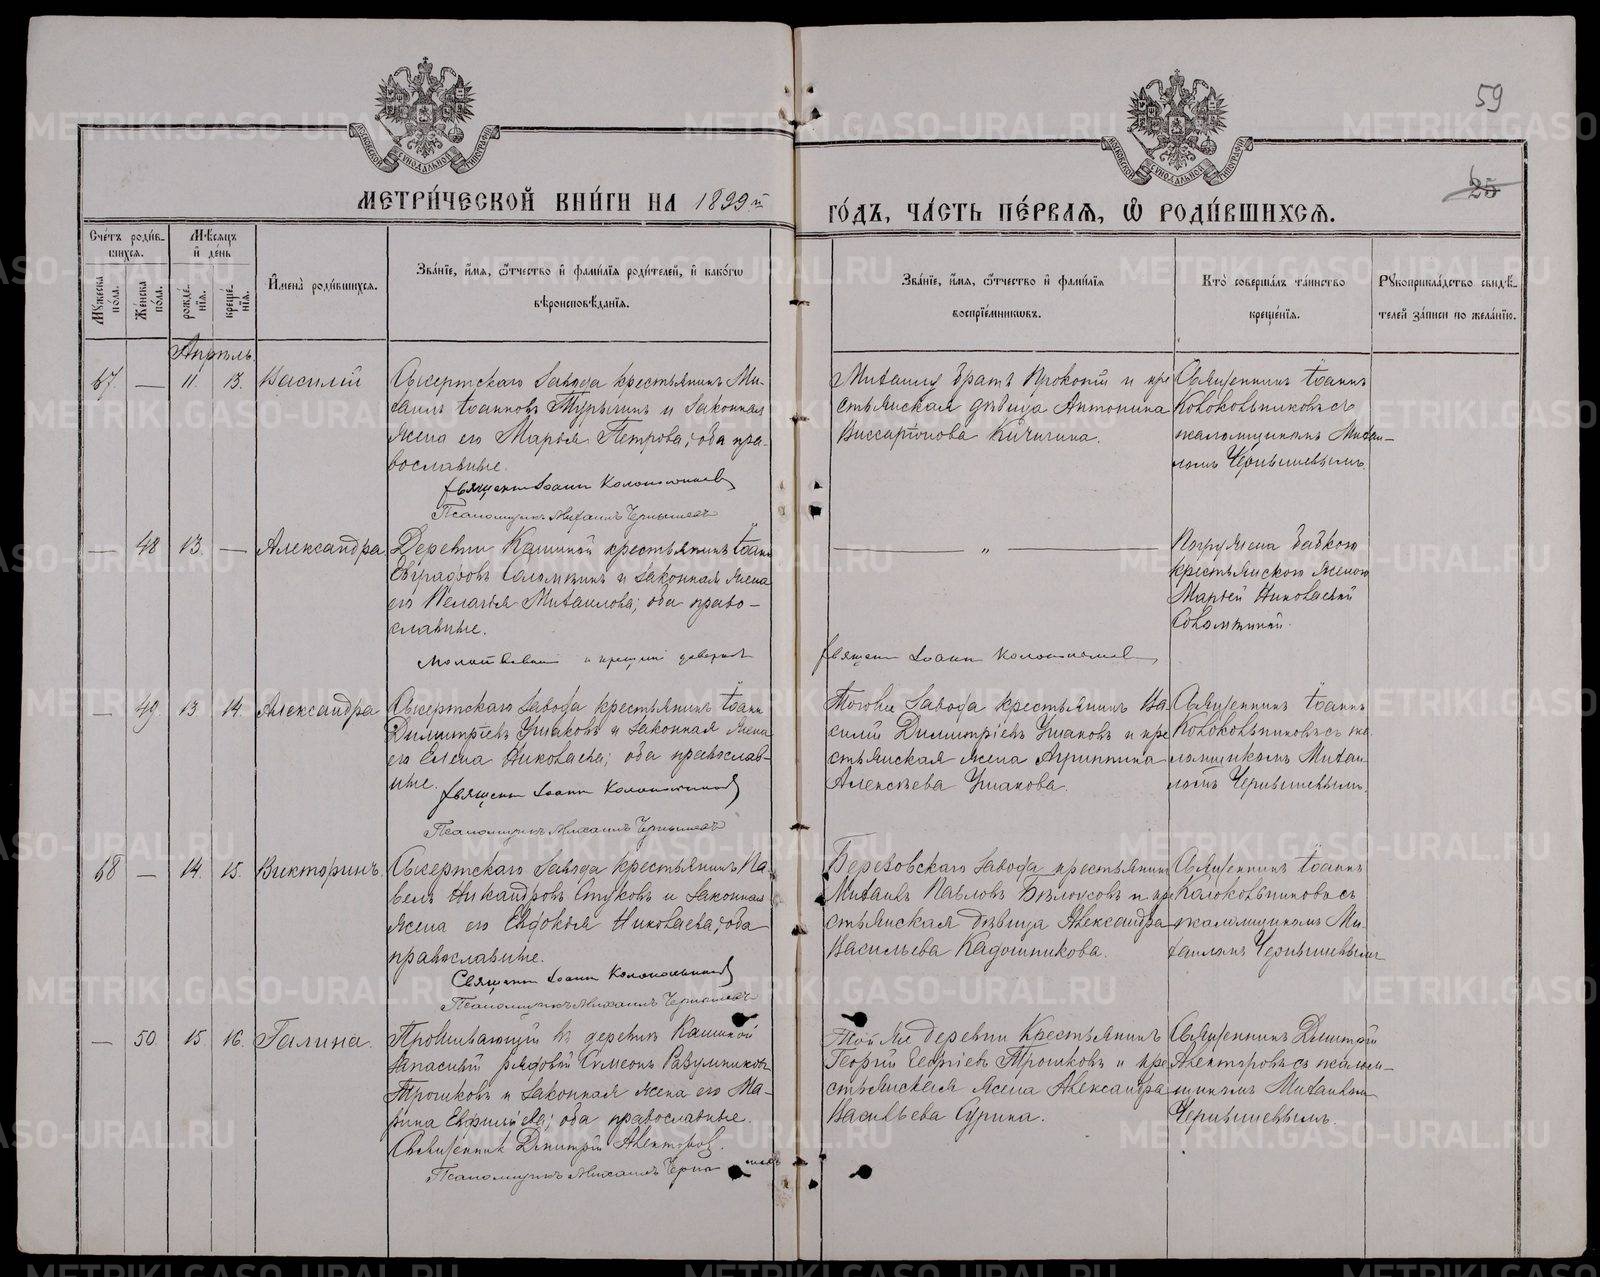 59
25
МОСКОВСКОЙ СѴНОДАЛЬНОЙ ТИПОГРАФІИ
МОСКОВСКОЙ СѴНОДАЛЬНОЙ ТИПОГРАФІИ
МЕТРИ́ЧЕСКОЙ КНИ́ГИ НА 1899й
ГО́ДЪ, ЧА́СТЬ ПЕ́РВАЯ, Ѡ҆ РОДИ́ВШИХСЯ.
Сче́тъ роди́в-
шихся.
Мꙋжеска по́ла.
Же́нска по́ла.
Мѣ́сяцъ и҆ де́нь
рожде́нїя.
креще́нїя.
И҆мена̀ роди́вшихся.
Зва́нїе, и҆́мя, ѻ҆́тчество и҆ фами́лїя роди́телей, и҆ како́гѡ
вѣроисповѣ́данїя.
Зва́нїе, и҆́мя, ѻ҆́тчество и҆ фами́лїя
воспрїе́мникѡвъ.
Кто̀ соверша́лъ та́инство
креще́нїя.
Рꙋкоприкла́дство свидѣ́-
телей за́писи по жела́нїю.
Апрѣль.
67. — 11. 13. Василій
Сысертскаго завода крестьянинъ Ми-
хаилъ Іоанновъ Турыгинъ и законная
жена его Марья Петрова; оба пра-
вославные.
Священн Іоаннъ Колокольниковъ
Псаломщикъ Михаилъ Чернышевъ
Михаилу братъ Прокопій и кре
стьянская дѣвица Антонина
Виссаріонова Кичигина.
Священникъ Іоаннъ
Колокольниковъ съ
псаломщикомъ Михаи-
ломъ Чернышевымъ.
— 48 13. — Александра
Деревни Кашиной крестьянинъ Іоаннъ
Евграфовъ Соломеинъ и законная жена
его Пелагія Михаилова; оба право-
славные.
Молитвовалъ и крещеніе довершилъ
Священн Іоаннъ Колокольниковъ
— „ —
Погружена бабкою
крестьянскою женою
Марьей Николаевой
Соломеиной.
— 49. 13 14. Александра
Сысертскаго завода крестьянинъ Іоаннъ
Димитріевъ Ушаковъ и законная жена
его Елена Николаева; оба православ-
ные.
Священн Іоаннъ Колокольниковъ
Псаломщикъ Михаилъ Чернышевъ
Тогоже завода крестьянинъ Ва
силій Димитріевъ Ушаковъ и кре
стьянская жена Агриппина
Алексѣева Ушакова.
Священникъ Іоаннъ
Колокольниковъ съ пса-
ломщикомъ Михаи-
ломъ Чернышевымъ.
68 — 14. 15. Викторинъ.
Сысертскаго завода крестьянинъ Па-
велъ Никандровъ Стуковъ и законная
жена его Евдокія Николаева; оба
православные.
Священн Іоаннъ Колокольниковъ
Псаломщикъ Михаилъ Чернышевъ
Березовскаго завода крестьянинъ
Михаилъ Павловъ Бѣлоусовъ и кре
стьянская дѣвица Александра
Васильева Кадошникова.
Священникъ Іоаннъ
Колокольниковъ съ
псаломщикомъ Ми-
хаиломъ Чернышевымъ
— 50. 15 16. Галина.
Проживающій въ деревнѣ Кашиной
запасный рядовой Симеонъ Разумниковъ
Трошковъ и законная жена его Ма-
рина Евфиміева; оба православные.
Священникъ Димитрій Алекторовъ.
Псаломщикъ Михаилъ Чернышевъ
Той же деревни крестьянинъ
Георгій Георгіевъ Трошковъ и кре
стьянская жена Александра
Васильева Сурина.
Священникъ Димитрій
Алекторовъ съ псалом-
щикомъ Михаиломъ
Чернышевымъ.